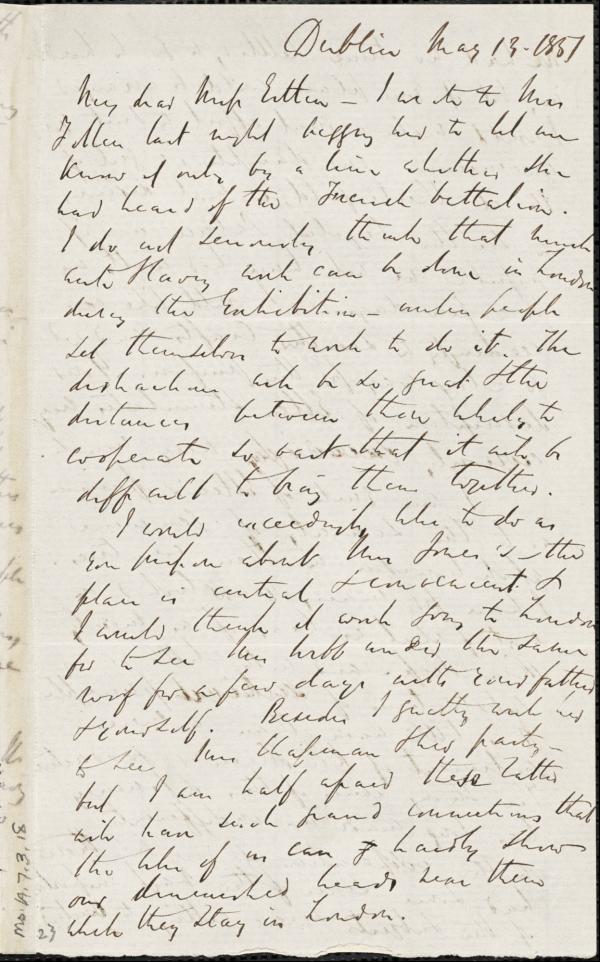 Dublin May 13 - 1851
My dear Miss Estlin - I wrote to Mrs
Follen last night begging her to let me
know if only by a line whether she
had heard of the French battalion.
I do not seriously think that much
anti Slavery work can be done in London
during the Exhibition - unless people
set themselves to work to do it. The
distractions will be so great & the
distances between those likely to
cooperate so vast that it will be
difficult to bring them together.
I would exceedingly like to do as
you propose about Mrs Jones's - the
place is central & convenient &
I would think it worth going to London
for to see Mrs Webb under the same
roof for a few days with your father
& yourself. Besides I greatly wish
to see Mrs Chapman & her party -
but I am half afraid these latter
will have such grand connections that
the like of us can hardly show
our diminished heads near them
while they stay in London.
Ms A.7.2.18
23